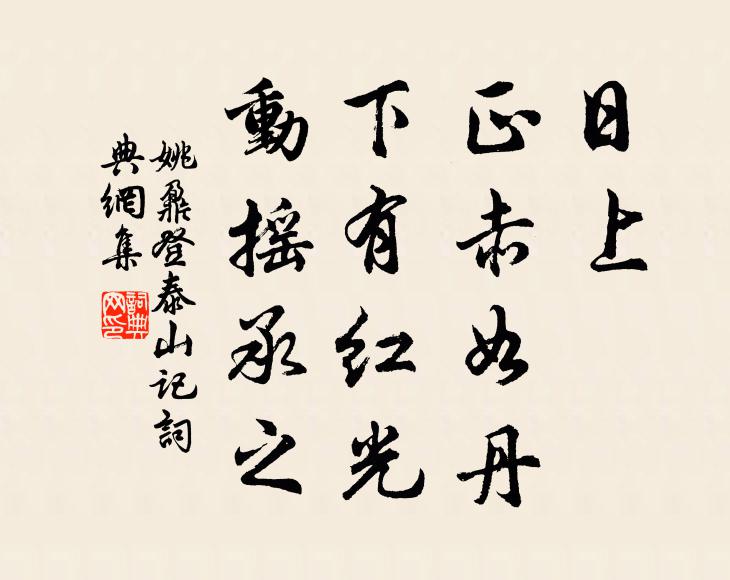 日上
正赤如丹
下有红光
動摇承之
姚鼐登泰山记詞
典網集
詞典网印